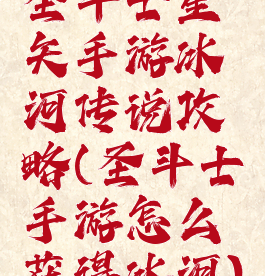 圣斗士星
矢手游冰
河传说攻
略(圣斗士
手游怎么
获得冰河)